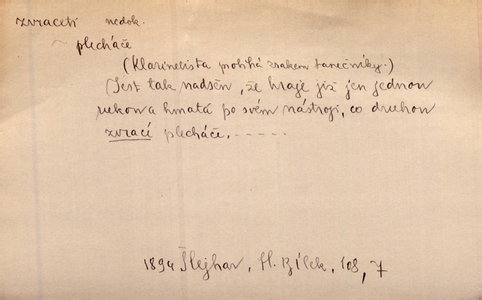 zvraceti nedok.
~ plecháče
(Klarinetista probíhá zrakem tanečníky.)
Jest tak nadšen, že hraje již jen jednou
rukou a hmatá po svém nástroji, co druhou
zvrací plecháče, -----
1894 Šlejhar, H. Bílek, 108, 7